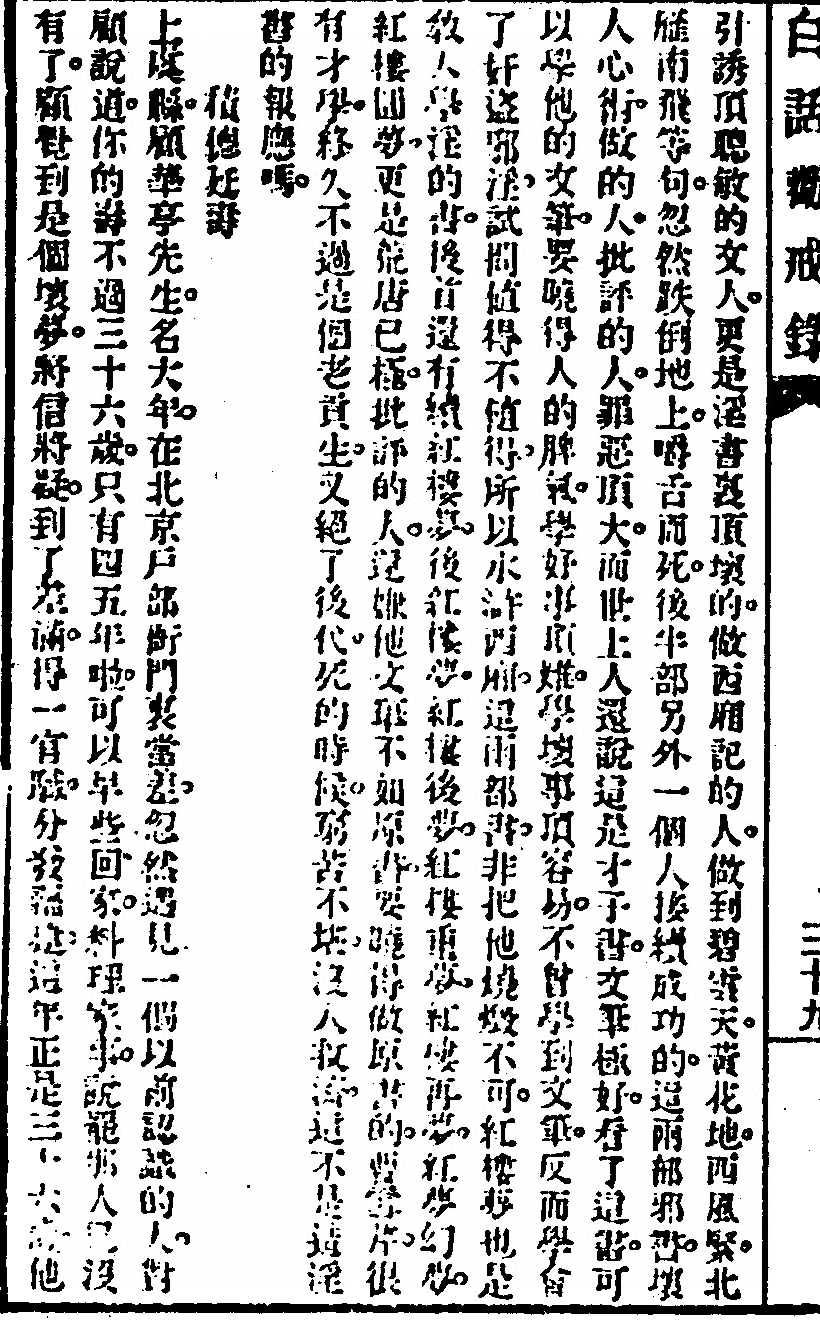 白話勸戒錄
三十九
引誘頂聰敏的女人。更是淫書裏頂壞的。做西廂記的人。做到碧雲天。黃花地。西風緊。北
雁南飛等句。忽然跌倒地上。嚼舌而死。後半部另外一個人接續成功的。這兩部邪書。壞
人心術。做的人。批評的人。罪惡頂大。而世上人還說這是才子書。文筆極好。看了這書。可
以學他的文筆。要曉得人的脾氣。學好事頂難。學壞事頂容易。不曾學到文筆。反而學會
了奸盜邪淫。試問值得不值得。所以水滸西廂。這兩部書。非把他燒燬不可。紅樓夢也是
教人學淫的書。後首還有續紅樓夢。後紅樓夢。紅樓後夢。紅樓重夢。紅樓再夢。紅樓幻夢。
紅樓圓夢。更是荒唐已極。批評的人。還嫌他文理不如原書。要曉得做原書的。曹雪芹。很
有才學。終久不過是個老貢生。又絕了後代。死的時候。窮苦不堪。沒人救濟。這不是造淫
書的報應嗎。
積德延壽
上虞縣。顧華亭先生。名大年。在北京戶部衙門裏當差。忽然遇見一個以前認識的人。對
顧說道。你的壽不過三十六歲。只有四五年啦。可以早些回家。料理家事。說罷那人已沒
有了。顧覺到是個壞夢。將信將疑。到了差滿。得一官職。分發福建。這年正是三十六歲。他